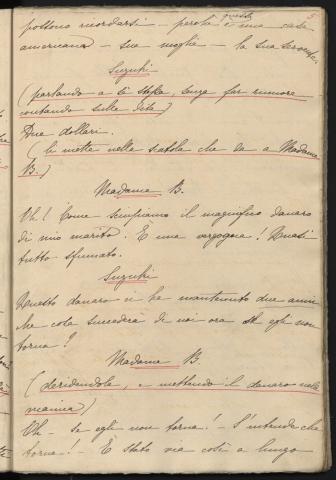 5
possono ricordarsi — perchè è questa una casa
americana — sua moglie — la sua seconda.
Suzuki
(parlando a sè stessa, senza far rumore
contando sulle dita)
Due dollari.
(li mette nella scatola che da a Madame
B.)
Madame B.
Oh! Come sciupiamo il magnifico danaro
di mio marito. È una vergogna! Quasi
tutto sfumato.
Suzuki
Questo danaro ci ha mantenuto due anni
che cosa succederà di noi ora se egli non
torna?
Madame B.
(deridendola, e mettendo il danaro nella
manica)
Oh — se egli non torna! — S'intende che
torna! — È stato via così a lungo